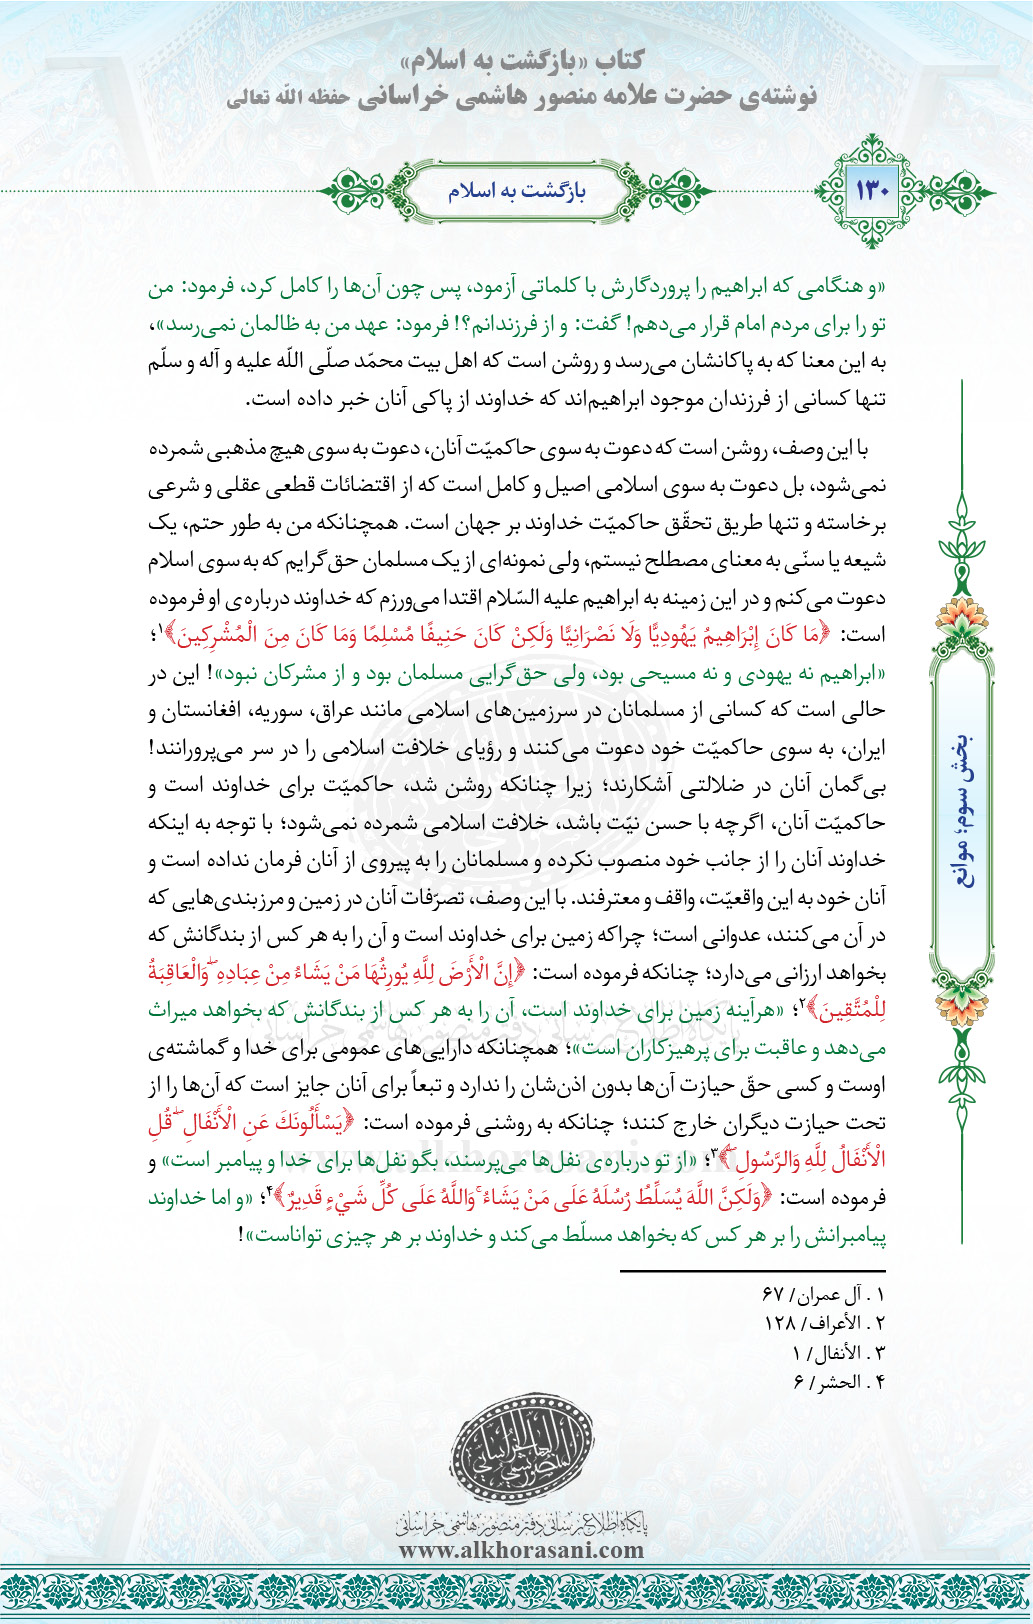 کتاب «بازگشت به اسلام»
نوشته‌ی حضرت علامه منصور هاشمی خراسانی حفظه الله تعالی
۱۳۰
بازگشت به اسلام
«و هنگامی که ابراهیم را پروردگارش با کلماتی آزمود، پس چون آن‌ها را کامل کرد، فرمود: من
تو را برای مردم امام قرار می‌دهم! گفت: و از فرزندانم؟! فرمود: عهد من به ظالمان نمی‌رسد»،
به این معنا که به پاکانشان می‌رسد و روشن است که اهل بیت محمّد صلّی اللّه علیه و آله و سلّم
تنها کسانی از فرزندان موجود ابراهیم‌اند که خداوند از پاکی آنان خبر داده است.
با این وصف، روشن است که دعوت به سوی حاکمیّت آنان، دعوت به سوی هیچ مذهبی شمرده
نمی‌شود، بل دعوت به سوی اسلامی اصیل و کامل است که از اقتضائات قطعی عقلی و شرعی
برخاسته و تنها طریق تحقّق حاکمیّت خداوند بر جهان است. همچنانکه من به طور حتم، یک
شیعه یا سنّی به معنای مصطلح نیستم، ولی نمونه‌ای از یک مسلمان حق‌گرایم که به سوی اسلام
دعوت می‌کنم و در این زمینه به ابراهیم علیه السّلام اقتدا می‌ورزم که خداوند درباره‌ی او فرموده
است: ﴿مَا كَانَ إِبْرَاهِيمُ يَهُودِيًّا وَلَا نَصْرَانِيًّا وَلَكِنْ كَانَ حَنِيفًا مُسْلِمًا وَمَا كَانَ مِنَ الْمُشْرِكِينَ﴾۱؛
«ابراهیم نه یهودی و نه مسیحی بود، ولی حق‌گرایی مسلمان بود و از مشرکان نبود»! این در
حالی است که کسانی از مسلمانان در سرزمین‌های اسلامی مانند عراق، سوریه، افغانستان و
ایران، به سوی حاکمیّت خود دعوت می‌کنند و رؤیای خلافت اسلامی را در سر می‌پرورانند!
بی‌گمان آنان در ضلالتی آشکارند؛ زیرا چنانکه روشن شد، حاکمیّت برای خداوند است و
حاکمیّت آنان، اگرچه با حسن نیّت باشد، خلافت اسلامی شمرده نمی‌شود؛ با توجه به اینکه
خداوند آنان را از جانب خود منصوب نکرده و مسلمانان را به پیروی از آنان فرمان نداده است و
آنان خود به این واقعیّت، واقف و معترفند. با این وصف، تصرّفات آنان در زمین و مرزبندی‌هایی که
در آن می‌کنند، عدوانی است؛ چراکه زمین برای خداوند است و آن را به هر کس از بندگانش که
بخواهد ارزانی می‌دارد؛ چنانکه فرموده است: ﴿إِنَّ الْأَرْضَ لِلَّهِ يُورِثُهَا مَنْ يَشَاءُ مِنْ عِبَادِهِ ۖ وَالْعَاقِبَةُ
لِلْمُتَّقِينَ﴾۲؛ «هرآینه زمین برای خداوند است، آن را به هر کس از بندگانش که بخواهد میراث
می‌دهد و عاقبت برای پرهیزکاران است»؛ همچنانکه دارایی‌های عمومی برای خدا و گماشته‌ی
اوست و کسی حقّ حیازت آن‌ها بدون اذن‌شان را ندارد و تبعاً برای آنان جایز است که آن‌ها را از
تحت حیازت دیگران خارج کنند؛ چنانکه به روشنی فرموده است: ﴿يَسْأَلُونَكَ عَنِ الْأَنْفَالِ ۖ قُلِ
الْأَنْفَالُ لِلَّهِ وَالرَّسُولِ ۖ﴾۳؛ «از تو درباره‌ی نفل‌ها می‌پرسند، بگو نفل‌ها برای خدا و پیامبر است» و
فرموده است: ﴿وَلَكِنَّ اللَّهَ يُسَلِّطُ رُسُلَهُ عَلَى مَنْ يَشَاءُ ۚ وَاللَّهُ عَلَى كُلِّ شَيْءٍ قَدِيرٌ﴾۴؛ «و اما خداوند
پیامبرانش را بر هر کس که بخواهد مسلّط می‌کند و خداوند بر هر چیزی تواناست»!
بخش سوم؛ موانع
۱ . آل عمران/ ۶۷
۲ . الأعراف/ ۱۲۸
۳ . الأنفال/ ۱
۴ . الحشر/ ۶
المنصور الهاشمي الخراساني
پایگاه اطلاع‌رسانی دفتر منصور هاشمی خراسانی
www.alkhorasani.com